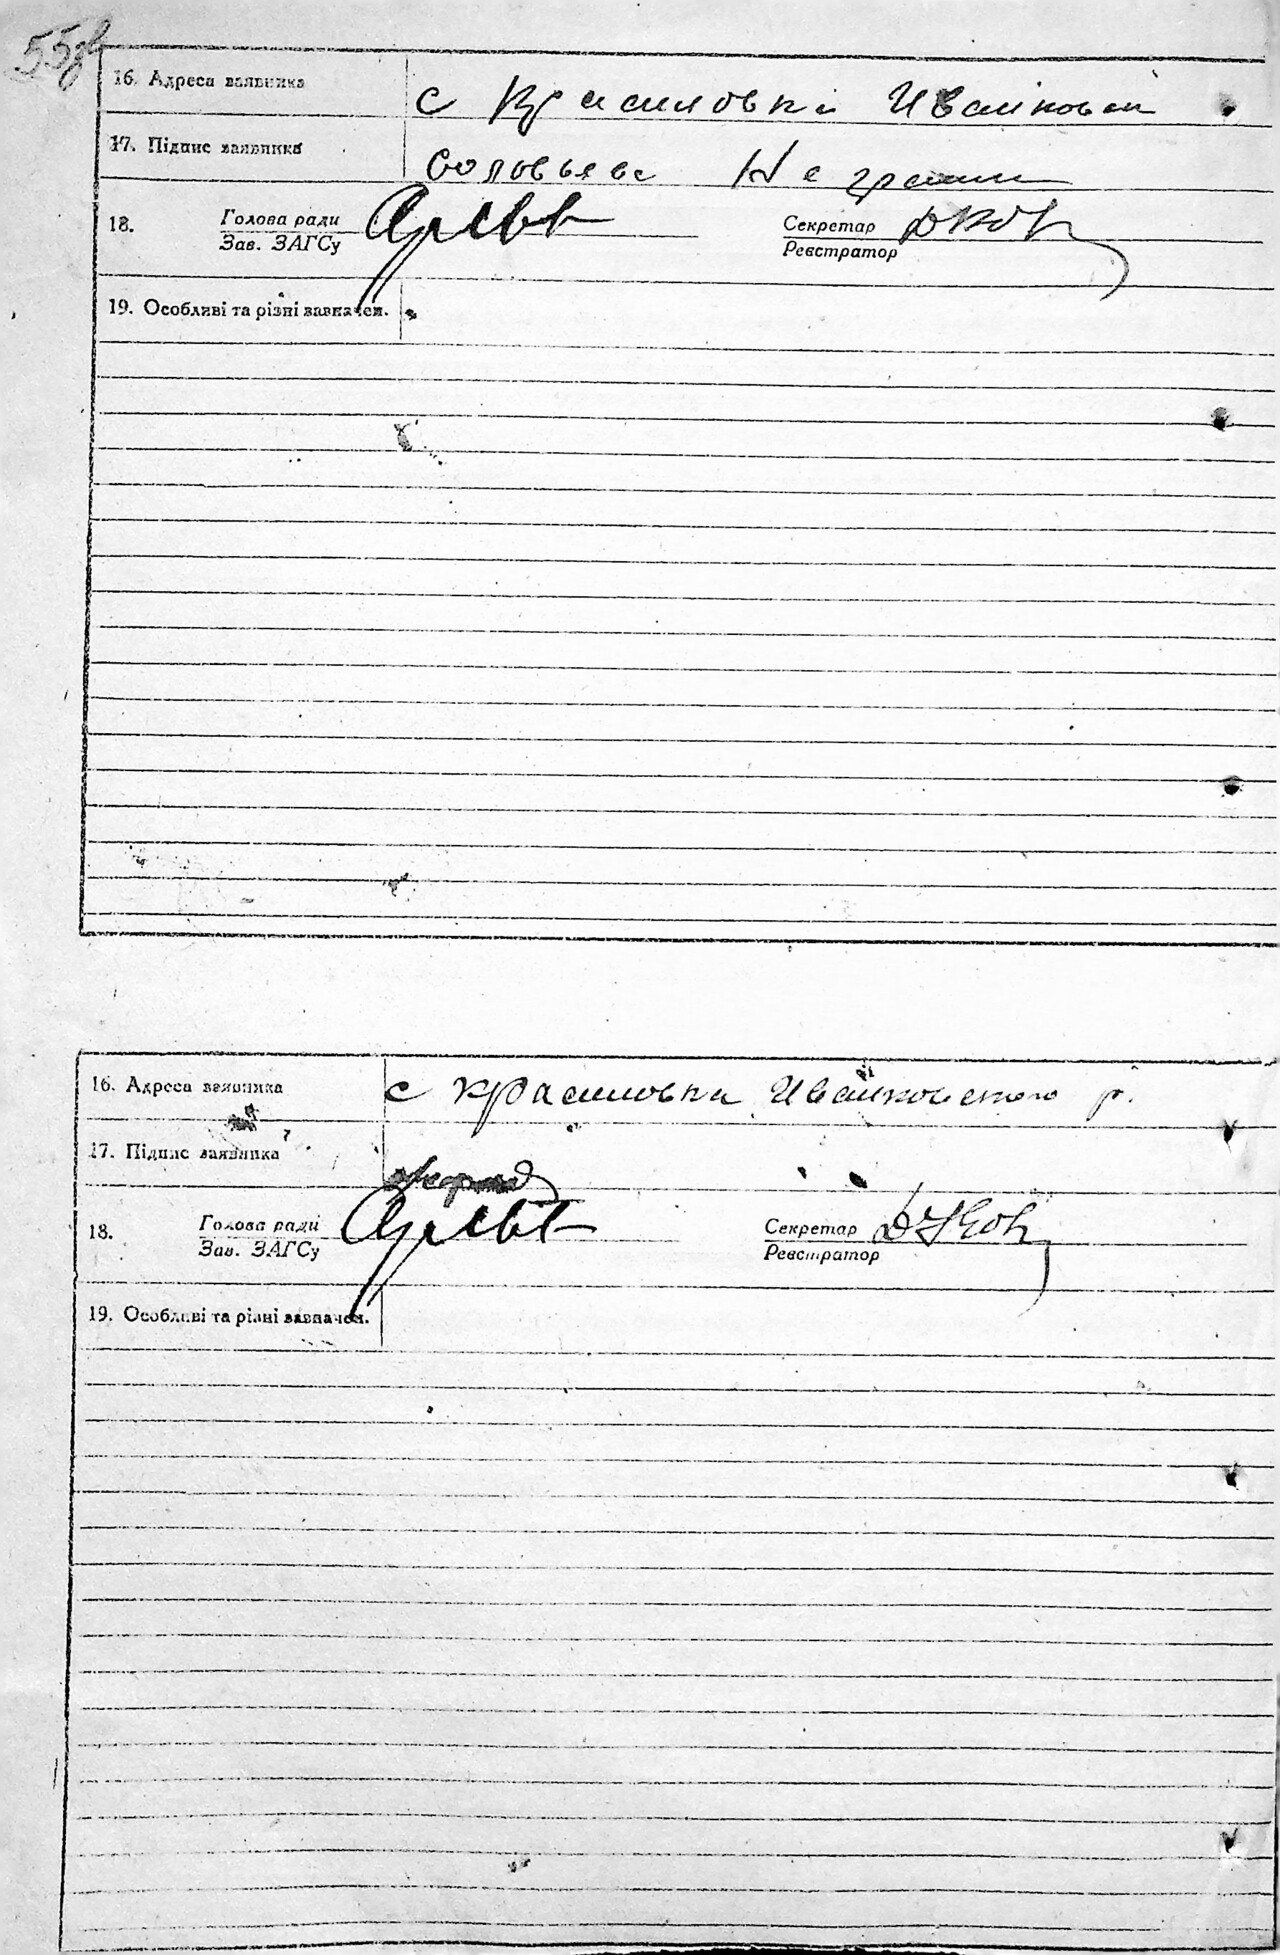 55зв
16. Адреса заявника с Красиловкі Иваінков
17. Підпис заявника Соловьева Не грам
18. Голова ради Секретар
Зав. ЗАГСу Реєстратор
19. Особливі та різні зазначен.
16. Адреса заявника с Красиловки Иванковского р.
17. Підпис заявника
18. Голова ради Секретар
Зав. ЗАГСу Реєстратор
19. Особливі та різні зазначен.